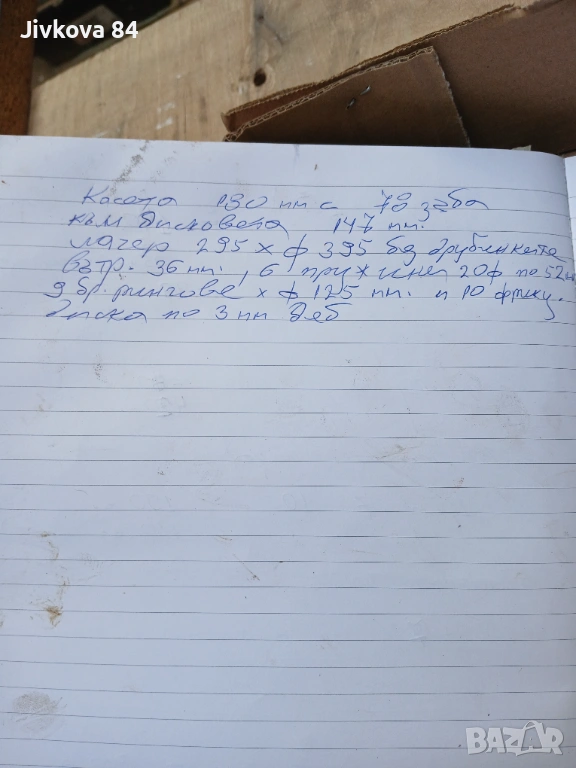 Jivkova 84
Касета 190 мм с 78 зъба
към дисковета 147 мм.
лагер 295 х ф 395 без
вътр. 36 мм, 6 пружини 20ф по 52
9 бр. рингове х ф 125 мм. и 10
диска по 3 мм деб
BAZAR